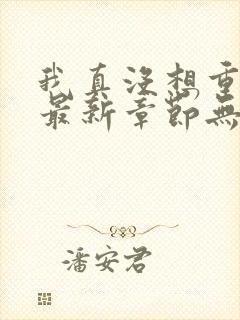 我真没想重
最新章節無
潘安君